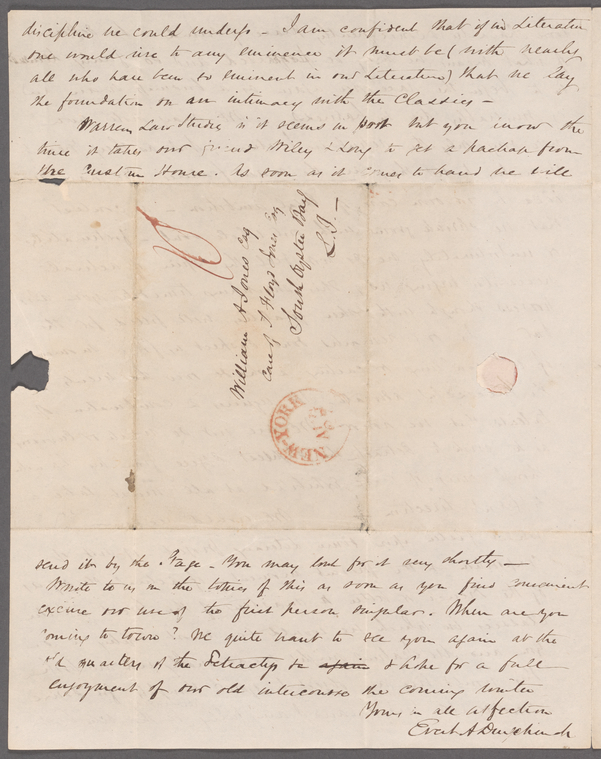 discipline we could undergo - I am confident that if in Literature
one would rise to any eminence it must be (with nearly
all who have been so eminent in our Literature) that we lay
the foundation on an intimacy with the Classics -
Warrens Law Studies is it seems in port but you know the
time it takes our friend Wiley & Long to get a package from
the Custom House. As soon as it comes to hand we will
10
William A Jones Esq
Care of T Floyd Jones Esq
South Oyster Bay
L I -
NEW-YORK
send it by the Stage - You may look for it very shortly -
Write to us on the of this as soon as you find convenient
excuse our use of the first person singular. When are you
coming to town? We quite want to see you again at the
old quarters of the Tetractys & for a full
enjoyment of our old intercourse the coming winter
Yours in all affection
Evert A Duyckinck